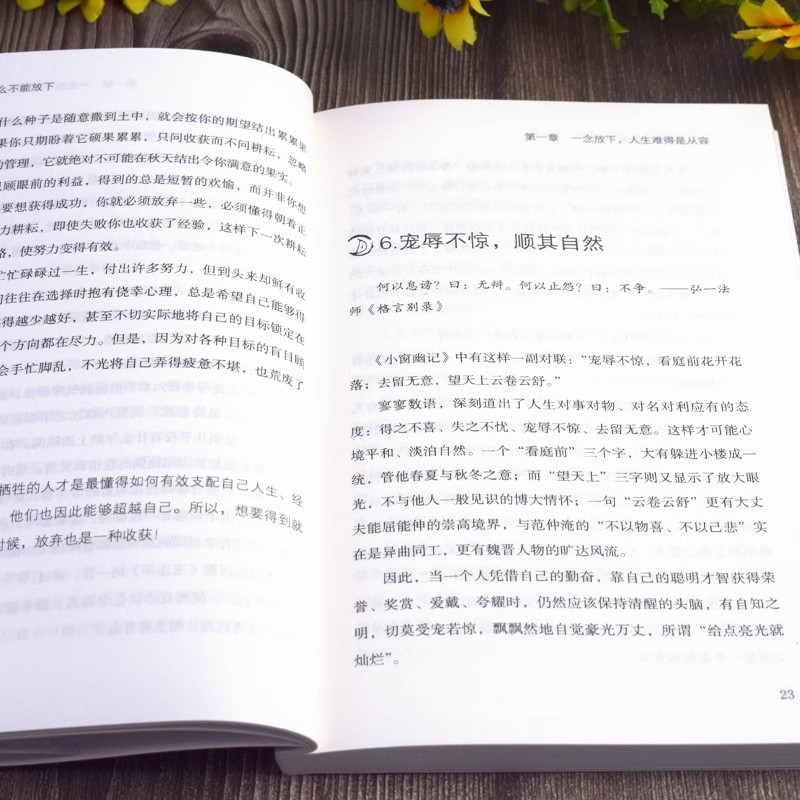 么不能放下
什么种子是随意撒到土中，就会按你的期望结出累累果
果你只期盼着它硕果累累，只问收获而不问耕耘，忽略
的管理，它就绝对不可能在秋天结出令你满意的果实。
顾眼前的利益，得到的总是短暂的欢愉，而并非你想
要想获得成功，你就必须放弃一些，必须懂得朝着正
力耕耘，即使失败你也收获了经验，这样下一次耕耘
路，使努力变得有效。
忙忙碌碌过一生，付出许多努力，但到头来却鲜有收
们往往在选择时抱有侥幸心理，总是希望自己能够得
得越少越好，甚至不切实际地将自己的目标锁定在
个方向都在尽力。但是，因为对各种目标的盲目顾
会手忙脚乱，不光将自己弄得疲惫不堪，也荒废了
牺牲的人才是最懂得如何有效支配自己人生、经
他们也因此能够超越自己。所以，想要得到就
时候，放弃也是一种收获！
第一章 一念放下，人生难得是从容
6.宠辱不惊，顺其自然
何以息谤？曰：无辩。何以止怨？曰：不争。——弘一法
师《格言别录》
《小窗幽记》中有这样一副对联：“宠辱不惊，看庭前花开花
落；去留无意，望天上云卷云舒。”
寥寥数语，深刻道出了人生对事对物、对名对利应有的态
度：得之不喜、失之不忧、宠辱不惊、去留无意。这样才可能心
境平和、淡泊自然。一个“看庭前”三个字，大有躲进小楼成一
统，管他春夏与秋冬之意；而“望天上”三字则又显示了放大眼
光，不与他人一般见识的博大情怀；一句“云卷云舒”更有大丈
夫能屈能伸的崇高境界，与范仲淹的“不以物喜、不以己悲”实
在是异曲同工，更有魏晋人物的旷达风流。
因此，当一个人凭借自己的勤奋，靠自己的聪明才智获得荣
誉、奖赏、爱戴、夸耀时，仍然应该保持清醒的头脑，有自知之
明，切莫受宠若惊，飘飘然地自觉豪光万丈，所谓“给点亮光就
灿烂”。
23